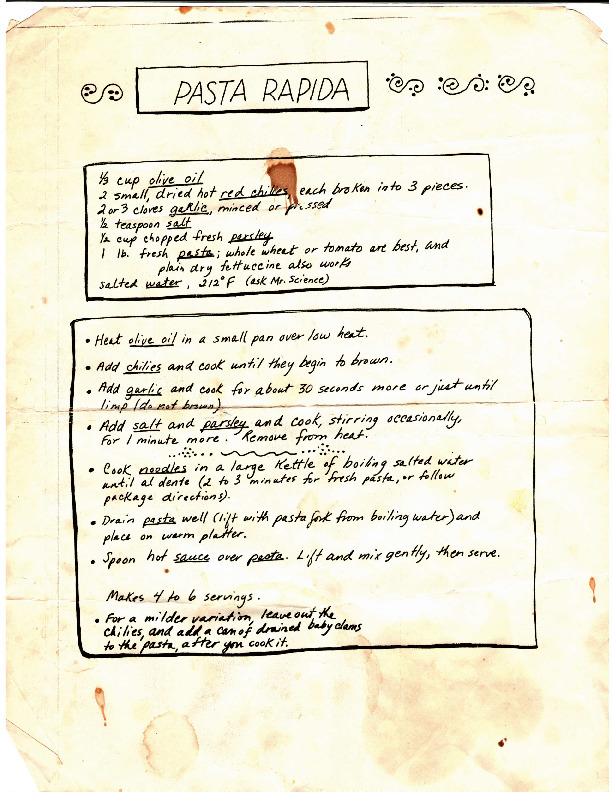 PASTA RAPIDA
⅓ cup olive oil
2 small, dried hot red chilies, each broken into 3 pieces.
2 or 3 cloves garlic, minced or pressed
½ teaspoon salt
½ cup chopped fresh parsley
1 lb. fresh pasta; whole wheat or tomato are best, and
plain dry fettuccine also works
salted water, 212° F (ask Mr. Science)
• Heat olive oil in a small pan over low heat.
• Add chilies and cook until they begin to brown.
• Add garlic and cook for about 30 seconds more or just until
limp (do not brown)
• Add salt and parsley and cook, stirring occasionally,
For 1 minute more. Remove from heat.
• Cook noodles in a large Kettle of boiling salted water
until al dente (2 to 3 minutes for fresh pasta, or follow
package directions).
• Drain pasta well (lift with pasta fork from boiling water) and
place on warm platter.
• Spoon hot sauce over pasta. Lift and mix gently, then serve.
Makes 4 to 6 servings.
• For a milder variation, leave out the
chilies, and add a can of drained baby clams
to the pasta, after you cook it.